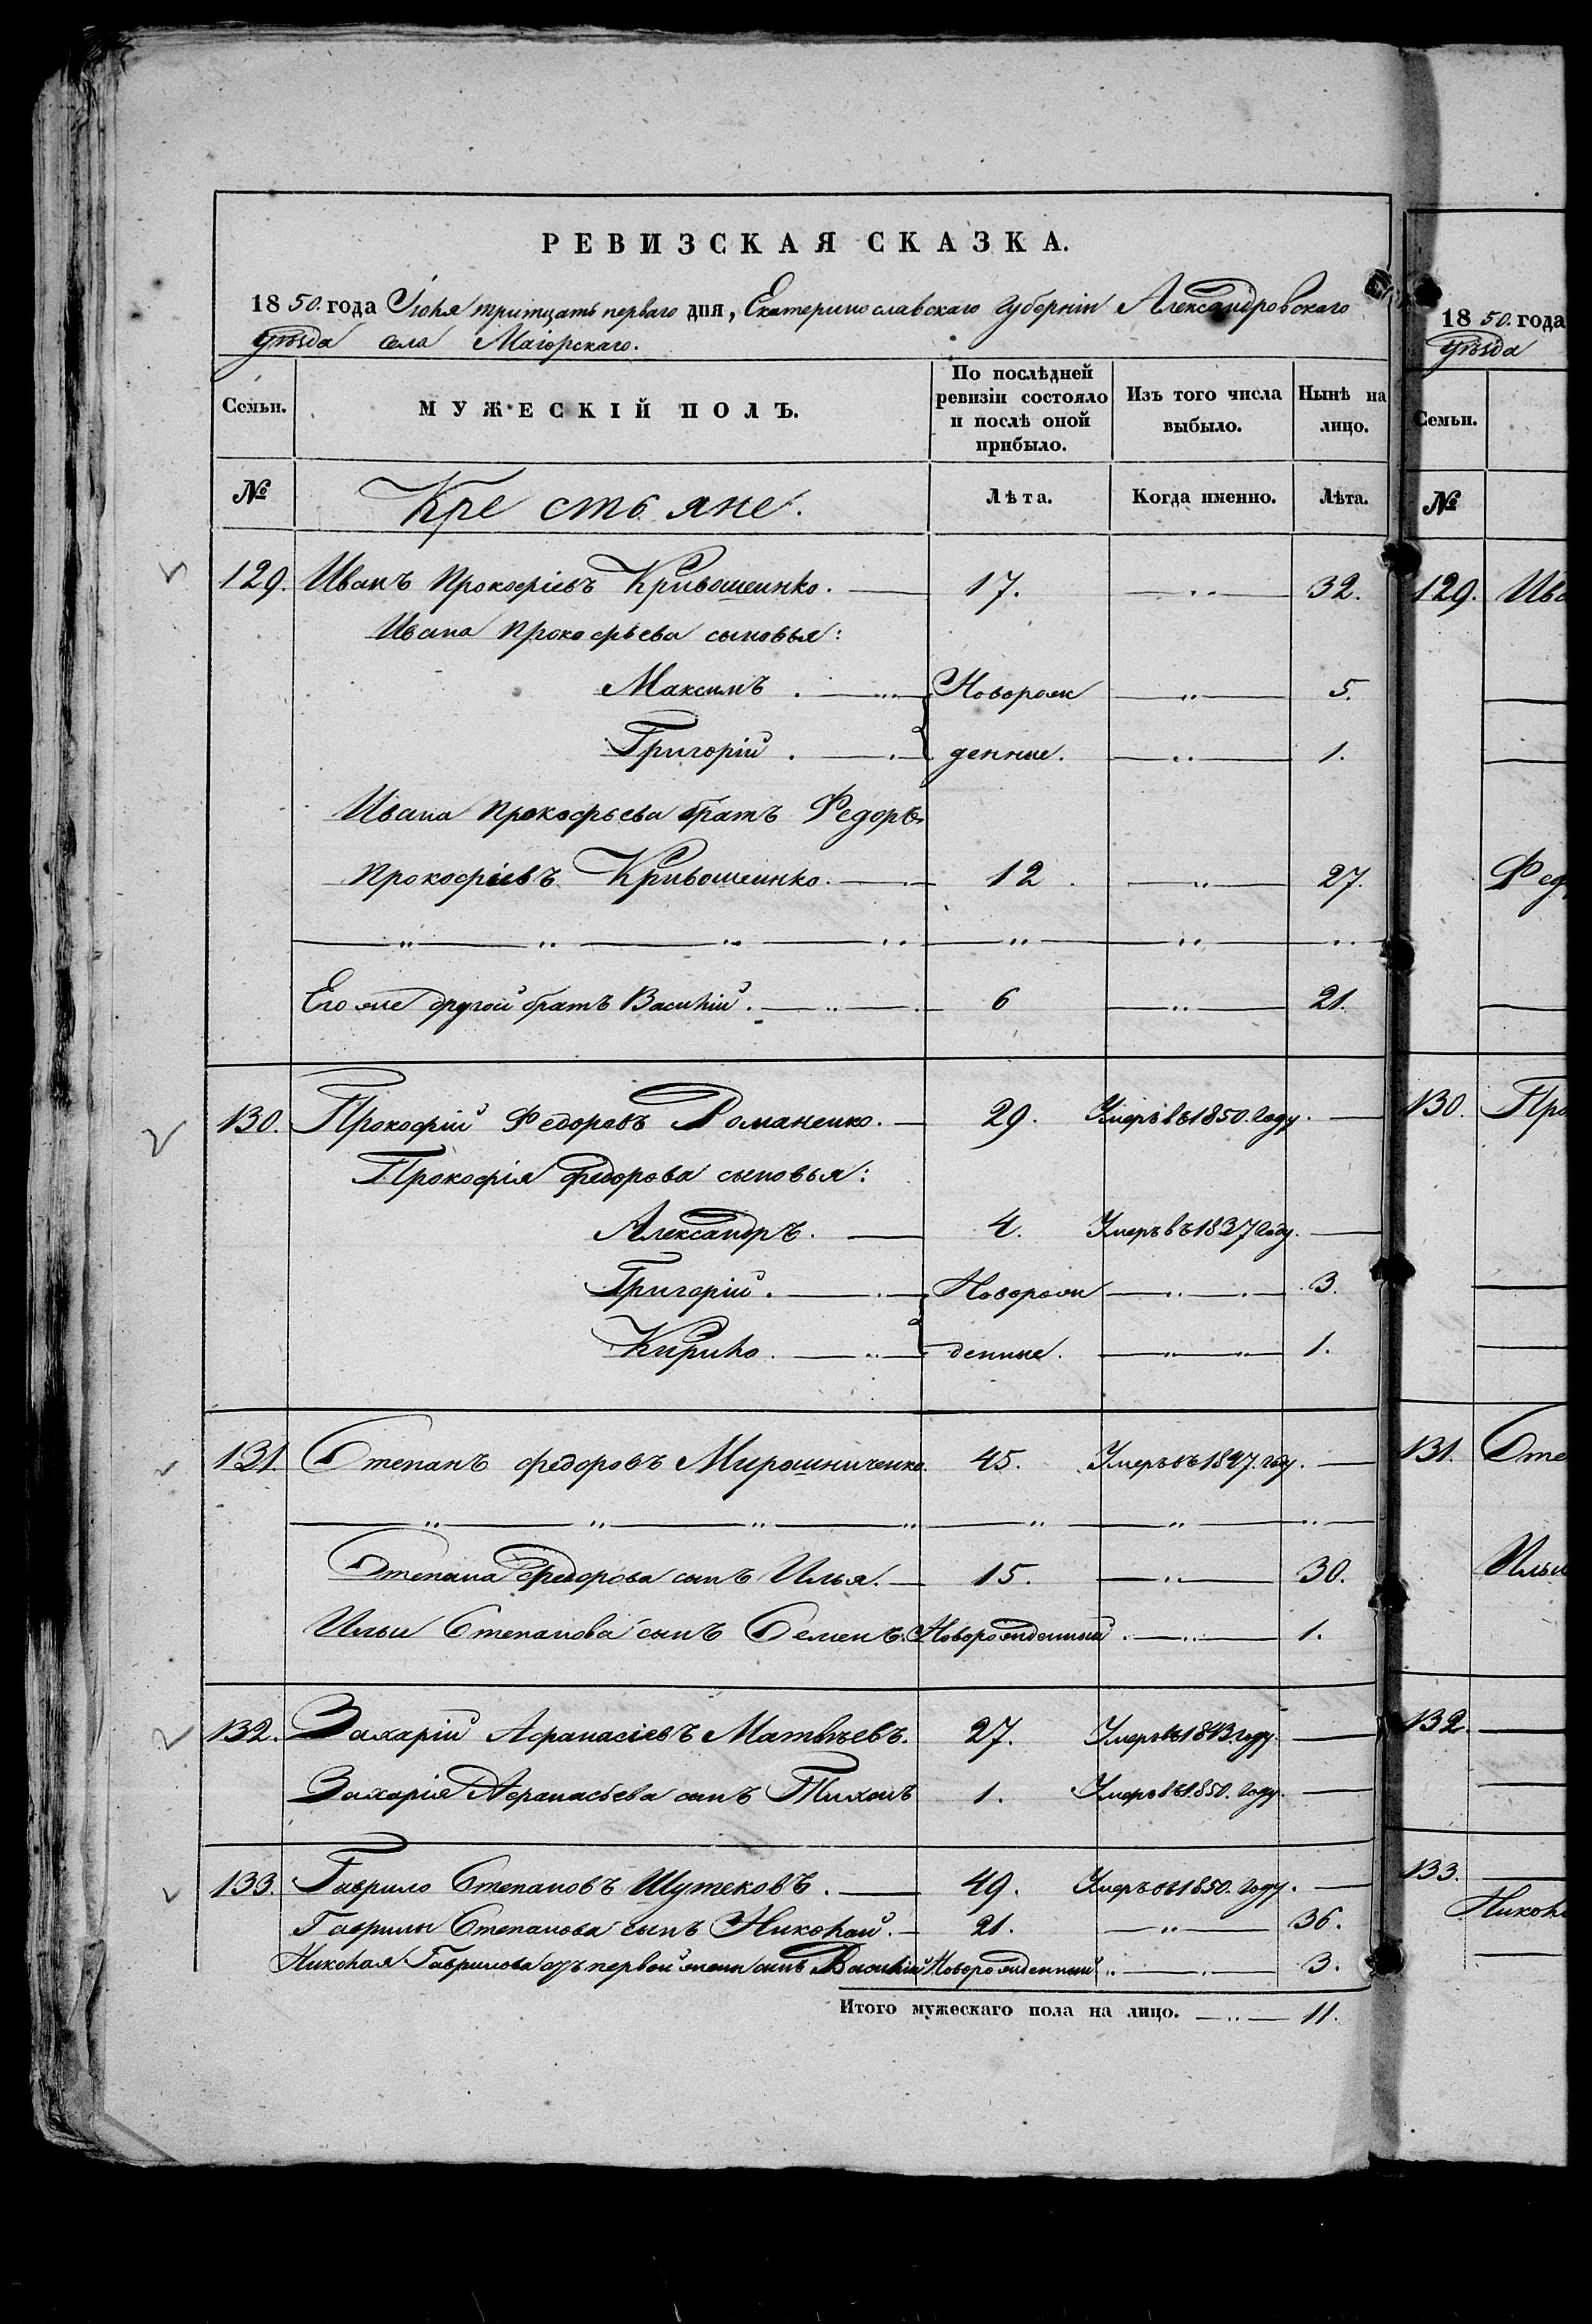 РЕВИЗСКАЯ СКАЗКА.
1850. года Іюля тритцать перваго дня, Екатеринославскаго губерніи Александровскаго
уѣзда села Маіорскаго.
Семьи. МУЖЕСКІЙ ПОЛЪ. По послѣдней ревизіи состояло и послѣ оной прибыло. Изъ того числа выбыло. Нынѣ на лицо.
№ Крестьяне. Лѣта. Когда именно. Лѣта.
129. Иванъ Прокофіевъ Кривошеинко. 17. 32.
Ивана Прокофьева сыновья:
Максимъ. Новорож 5.
Григорій. денные. 1.
Ивана Прокофьева братъ Федоръ
Прокофіевъ Кривошеинко. 12. 27.
Его же другой братъ Василій. 6 21.
130. Прокофій Федоровъ Романенко. 29. Умеръ въ 1850. году.
Прокофія Федорова сыновья:
Александръ. 4. Умеръ въ 1837 году.
Григорій. Новорож 3.
Кирило. денные. 1.
131. Степанъ Федоровъ Мирошниченко. 45. Умеръ въ 1847. году.
Степана Федорова сынъ Илья. 15. 30.
Ильи Степанова сынъ Семенъ. Новорожденный. 1.
132. Захарій Афанасіевъ Матвѣевъ. 27. Умеръ въ 1843 году.
Захарія Афанасьева сынъ Тихонъ 1. Умеръ въ 1850. году.
133. Гаврило Степановъ Шутековъ. 49. Умеръ въ 1850. году.
Гаврилы Степанова сынъ Николай. 21. 36.
Николая Гаврилова отъ первой жены сынъ Василій Новорожденный 3.
Итого мужескаго пола на лицо. 11.
1850. года
уѣзда
Семьи.
№
129. Ива
Фед
130. Про
131. Сте
Ильи
132.
133.
Никол